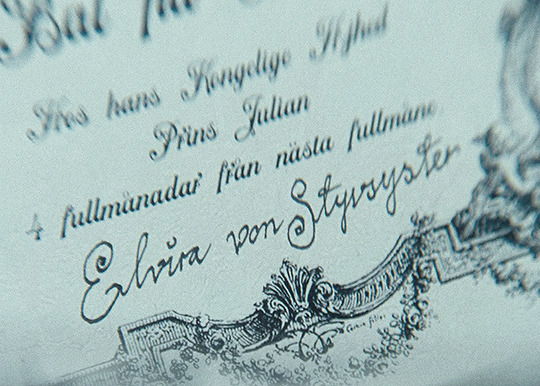 Bal för
Hos hans Kongelige Hjhed
Prins Julian
4 fullmånadar från nästa fullmåne.
Elvira von Styvsyster